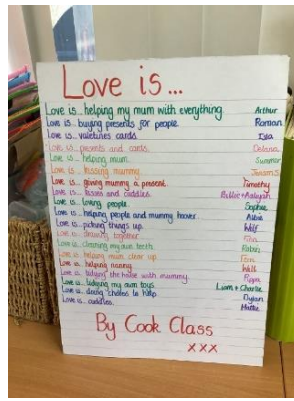 Love is...
Love is... helping my mum with everything Arthur
Love is... buying presents for people. Roman
Love is... valetines cards.
Love is... presents and cards.
Love is... helping mum. Summer
Love is... kissing mummy.
Love is... giving mummy a present. Timothy
Love is... kisses and cuddles.
Love is... loving people. Sophie
Love is... helping people and mummy hoover. Albie
Love is... picking things up. Wolf
Love is... drawing together.
Love is... cleaning my own teeth.
Love is... helping mum clear up.
Love is... helping nanny.
Love is... tidying the house with mummy.
Love is... tidying my own toys. Liam + Charlie
Love is... doing chores to help. Dylan
Love is... cuddles. Hattie
By Cook Class
xxx